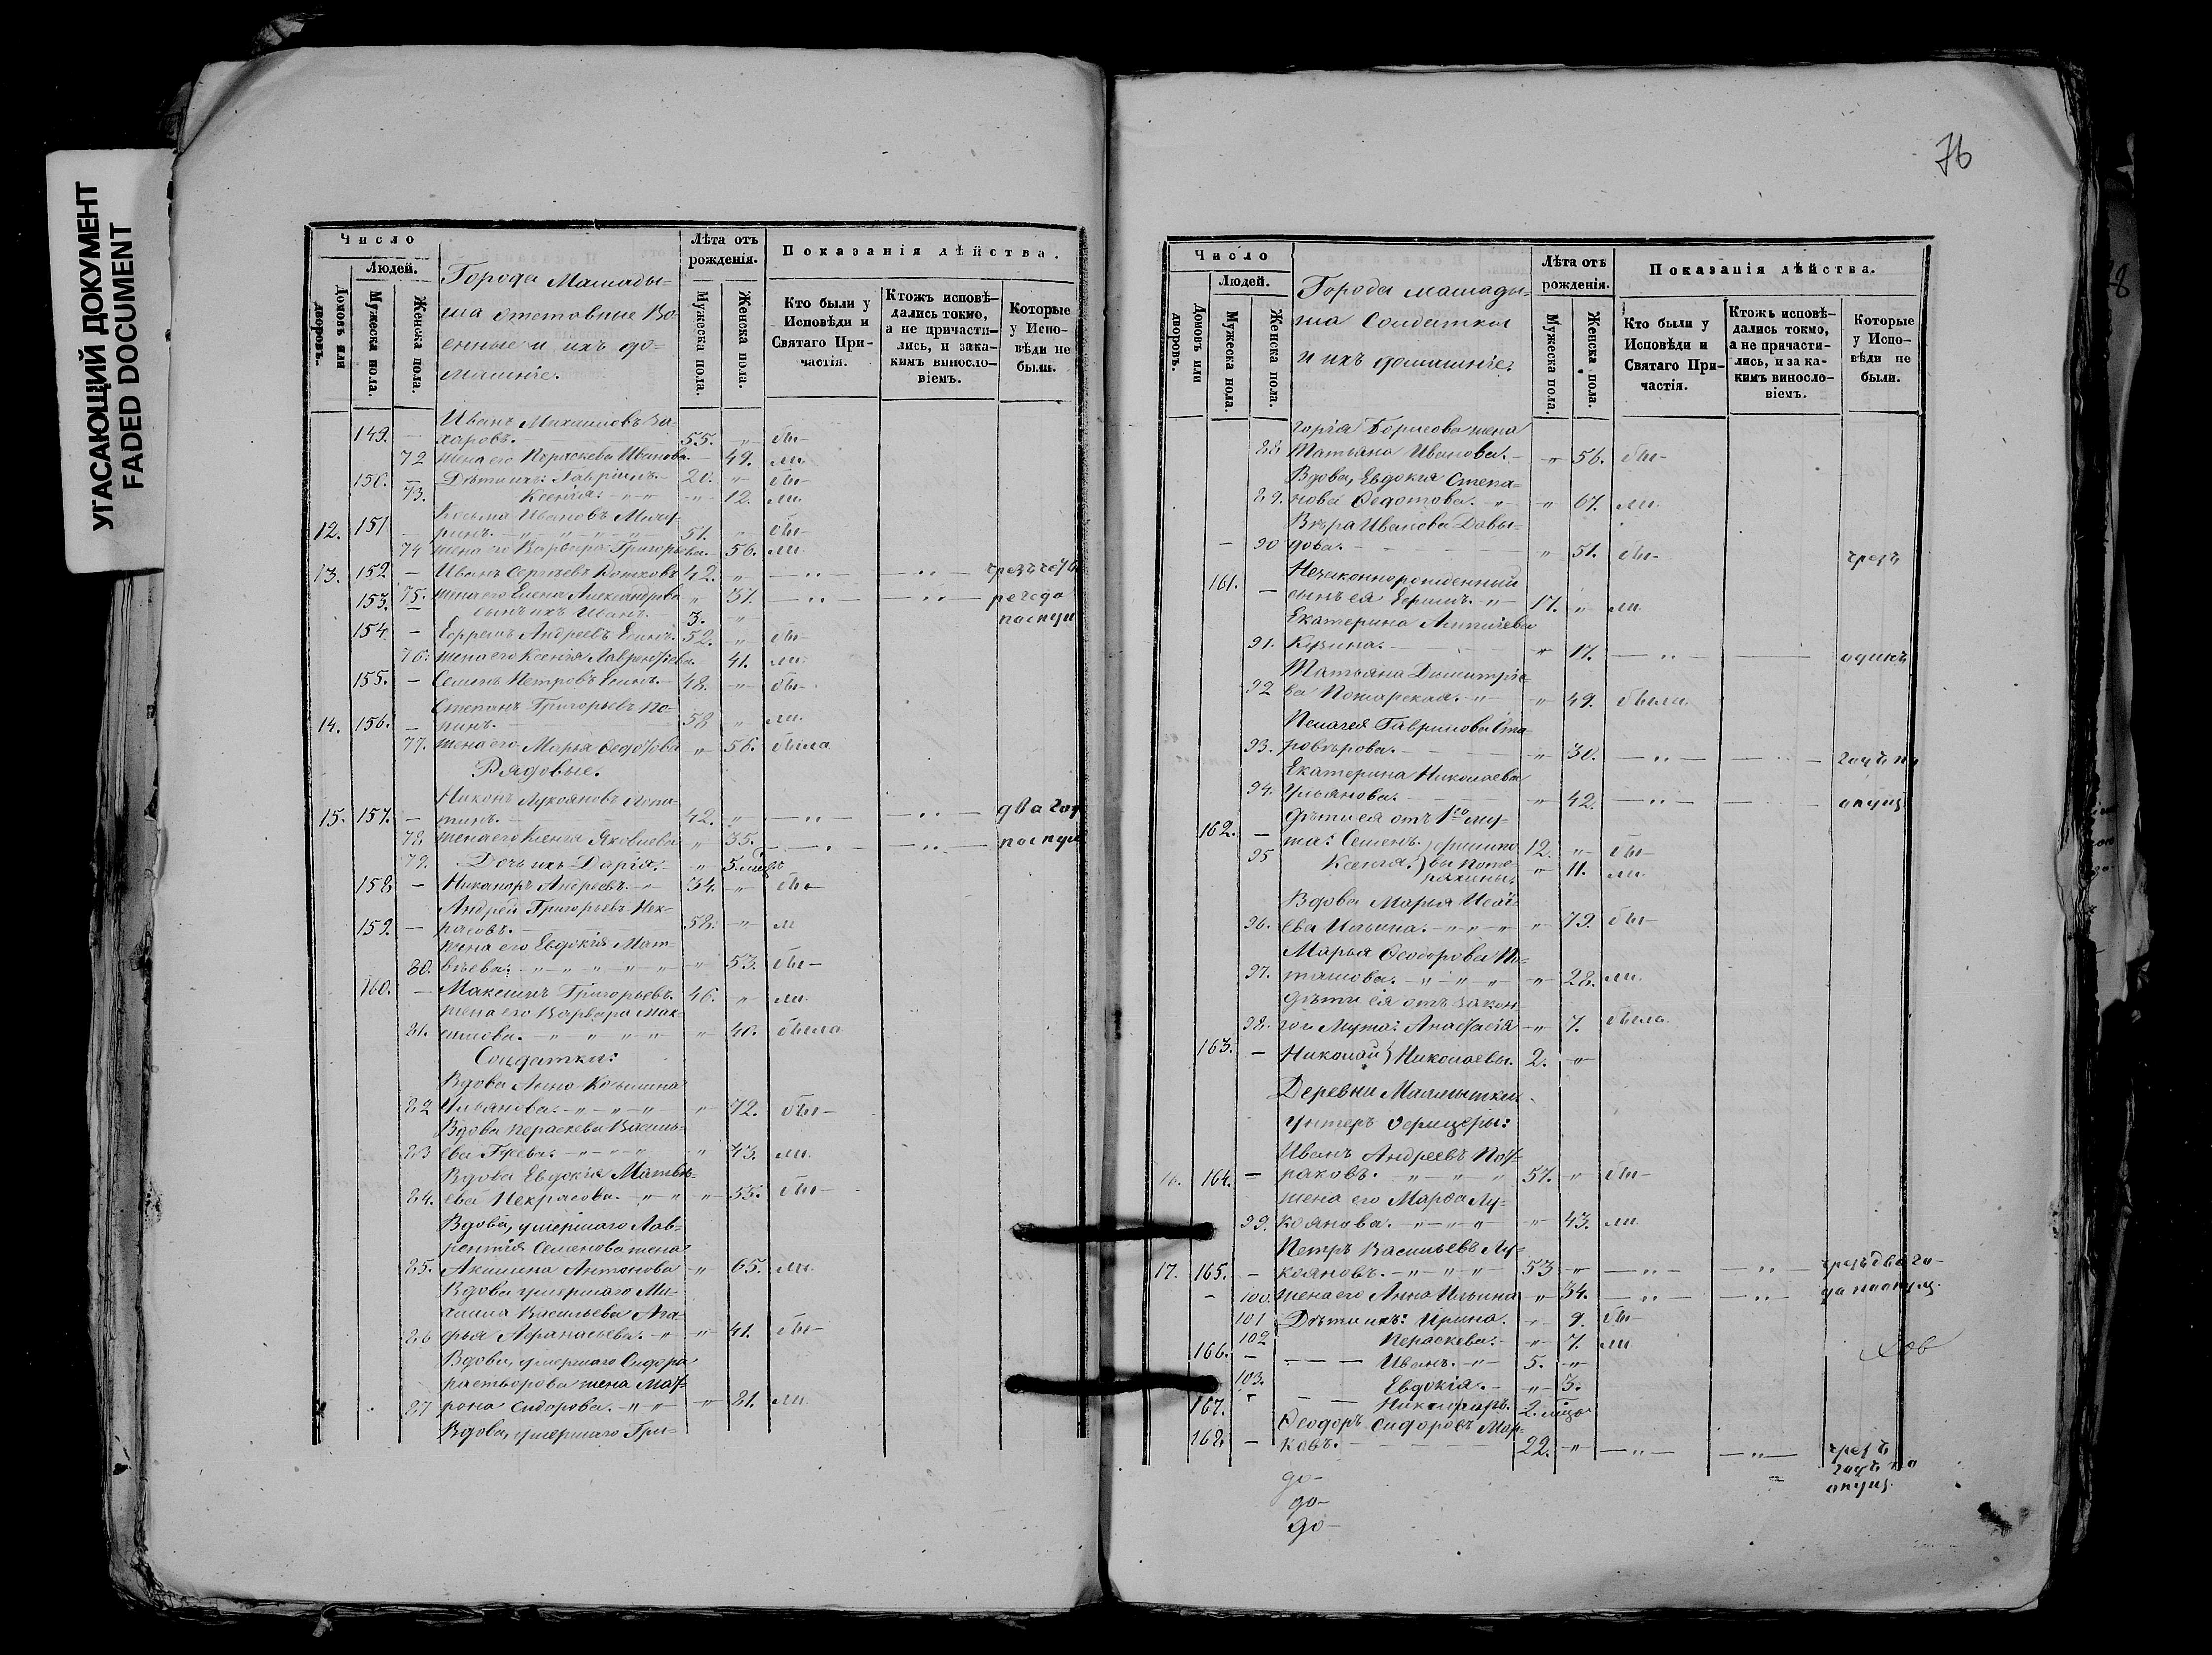 УГАСАЮЩИЙ ДОКУМЕНТ
FADED DOCUMENT
Число
Людей.
Домовъ или дворовъ.
Мужеска пола.
Женска пола.
Города Мамады-
ша отставные Во-
енные и ихъ до-
машніе.
Лѣта отъ рожденія.
Мужеска пола.
Женска пола.
Показанія дѣйства.
Кто были у Исповѣди и Святаго При-частія.
Ктожъ исповѣ-дались токмо, а не причасти-лись, и зака-кимъ виносло-віемъ.
Которые у Испо-вѣди не были.
Иванъ Михаиловъ За-
149. — харовъ. 55. " бы-
72 жена его Пораскева Иванова. — 49. ли.
150. — Дѣти ихъ: Гавріилъ. — 20. " бы-
73. Ксенія. " 12. ли.
Козьма Ивановъ Мичу-
12. 151 — ринъ. 51. " бы-
74 жена его Варвара Григорьева. — 56. ли.
13. 152 — Иванъ Сергѣевъ Котковъ 42. "
75. жена его Елена Александрова " 37.
153. — сынъ ихъ Иванъ. 3. "
154 — Ефремъ Андреевъ Есинъ. 52. " бы-
76. жена его Ксенія Лаврентьева. 41. ли.
155. — Семенъ Петровъ Есинъ. — 48. " бы-
Степанъ Григорьевъ По-
14. 156. — пинъ. 58 " ли.
77. жена его Марья Федотова " 56. была
Рядовые.
Никонъ Лукояновъ Лопа-
15. 157. — тинъ. 42. " два год
78. жена его Ксенія Яковлева " 35.
79. Дочь ихъ Дарія. — " 5. мѣсц.
158 — Никаноръ Андреевъ. 34. " бы-
Андрей Григорьевъ Нек-
159. — расовъ. 58. " ли
жена его Евдокія Мат-
80. вѣева. " 53. бы-
160. — Максимъ Григорьевъ. 46. " ли.
жена его Варвара Мак-
81. симова. " 40. была
Солдатки:
Вдова Анна Козьмина
82 Ульянова. " 72. бы-
Вдова Пераскева Василь-
83 ева Гусева. " 43. ли.
Вдова Евдокія Матвѣ-
84. ева Некрасова. " 55. бы-
Вдова, умершаго Лав-
рентія Семенова жена
85. Акилина Антонова " 65. ли.
Вдова умершаго Ми-
хаила Васильева Ага-
86 фья Афанасьева. " 41. бы-
Вдова, умершаго Сидора
жена Мат-
87 рона Сидорова. " 81. ли.
Вдова, умершаго Гри-
76
Число
Людей.
Домовъ или дворовъ.
Мужеска пола.
Женска пола.
Города Мамады-
ша Солдатки
и ихъ домашніе.
Лѣта отъ рожденія.
Мужеска пола.
Женска пола.
Показанія дѣйства.
Кто были у Исповѣди и Святаго При-частія.
Ктожъ исповѣ-дались токмо, а не причасти-лись, и за ка-кимъ виносло-віемъ.
Которые у Испо-вѣди не были.
горія Борисова жена
88 Татьяна Иванова. — " 56. бы-
Вдова, Евдокія Степа-
89. нова Федотова. " 67. ли.
Вѣра Иванова Давы-
90 дова. " 51. бы- чрезъ
Незаконнорожденный
161. — сынъ ея Ефимъ. 17. " ли.
Екатерина
91. Кузина. " 17. одинъ
Татьяна Димитріе-
92 ва Пожарская. " 49. была.
Пелагея Гаврилова Ста-
93. ровѣрова. " 30. годъ по
Екатерина Николаева
94. Ульянова. " 42. опущ
дѣти ея отъ 1го му-
162. — жа: Семенъ. 12. " бы-
95 Ксенія. " 11. ли.
Вдова Марья Исаі-
96. ева Ильина. " 79. бы-
Марья Феодорова
97. " 28. ли.
дѣти ея отъ закон
98. гой Мужа: Анастасія " 7. была
163. — Николай Николаевы. 2. "
Деревни Малмыжки
Унтеръ Офицеры:
Иванъ Андреевъ
16. 164. — раковъ. 57. " бы-
жена его Марфа Лу-
99. коянова. " 43. ли.
Петръ Васильевъ Лу-
17. 165. — кояновъ. 53 " чрезъ два го-
100. жена его Анна Ильина " 34. да по опущ.
101 Дѣти ихъ: Ирина. " 9. бы-
102 Пераскева. " 7. ли
166. — Иванъ. 5. "
103. Евдокія. " 3.
167. Никифоръ. 2. мѣсц.
Феодоръ Сидоровъ Мор-
168. — ковъ. 22. " чрезъ
годъ по
опущ.
до-
до-
до-